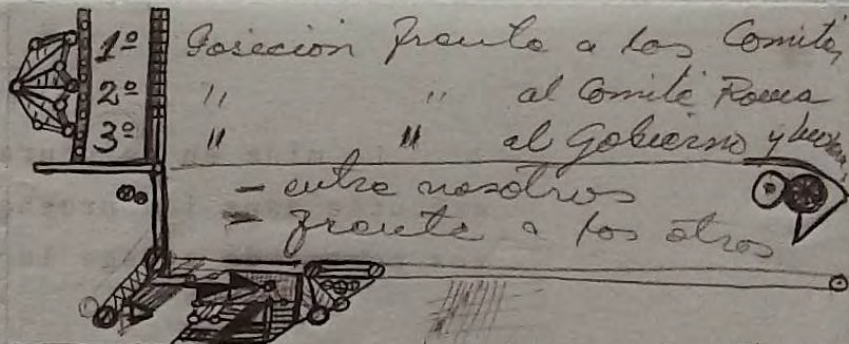 1º Posición frente a los Comités
2º " " al Comité Roma
3º " " al Gobierno y
- entre nosotros
- frente a los otros